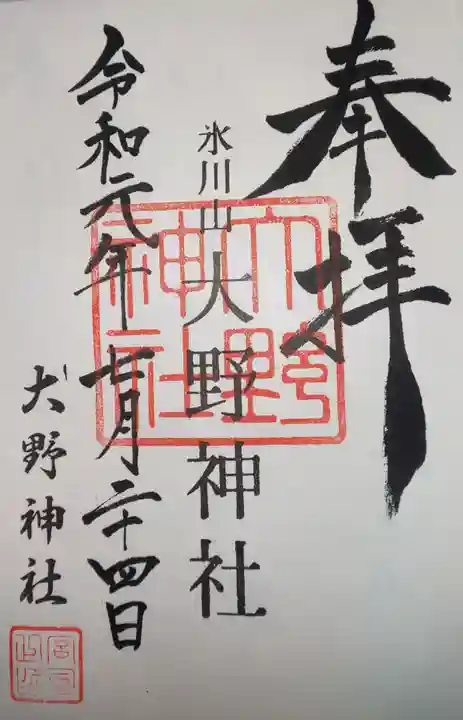 奉拝
氷川山大野神社
大野神社
令和元年七月二十四日
大野神社
宮司之印